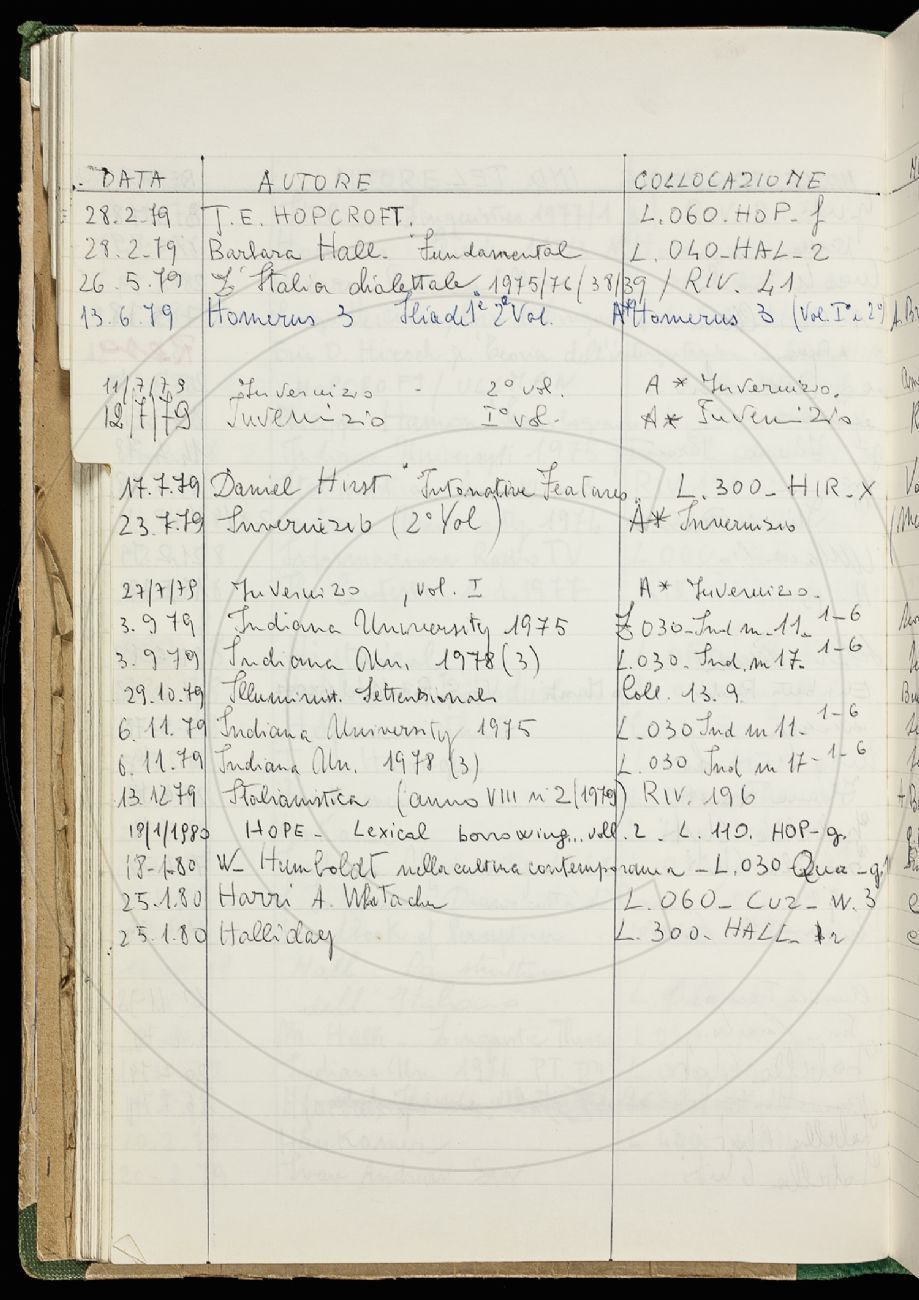 DATA AUTORE COLLOCAZIONE
28.2.79 J.E. HOPCROFT. L.060.HOP-f
28.2.79 Barbara Hall. Fundamental L. 040-HAL-2
26.5.79 L'Italia dialettale 1975/76/38/39 / RIV. 41
13.6.79 Homerus 3 Iliade 1° 2° Vol. A* Homerus 3 (Vol. I° e 2°)
11/7/79 Invernizio - 2° vol. A * Invernizio.
12/7/79 Invernizio I° vol. A* Invernizio
17.7.79 Daniel Hirst "Intonative Features L. 300-HIR-X
23.7.79 Invernizio (2° Vol) A* Invernizio
27/7/79 Invernizio, vol. I A * Invernizio.
3.9 79 Indiana University 1975 L 030-Ind n. 11. 1-6
3.9 79 Indiana Un. 1978 (3) L.030. Ind. n 17- 1-6
29.10.79 Illuminist. Settentrionali Coll. 13.9
6.11.79 Indiana University 1975 L.030 Ind n 11- 1-6
6.11.79 Indiana Un. 1978 (3) L.030 Ind n 17-1-6
13.12 79 Italianistica (anno VIII n° 2/1979) RIV. 196
18/1/1980 HOPE - Lexical borrowing... vol. 2 . L. 110. HOP-g.
18-1.80 W- Humboldt nella cultura contemporanea - L.030 Qua-g1
25.1.80 Harri A. L.060-
25.1.80 Halliday L.300- HALL-